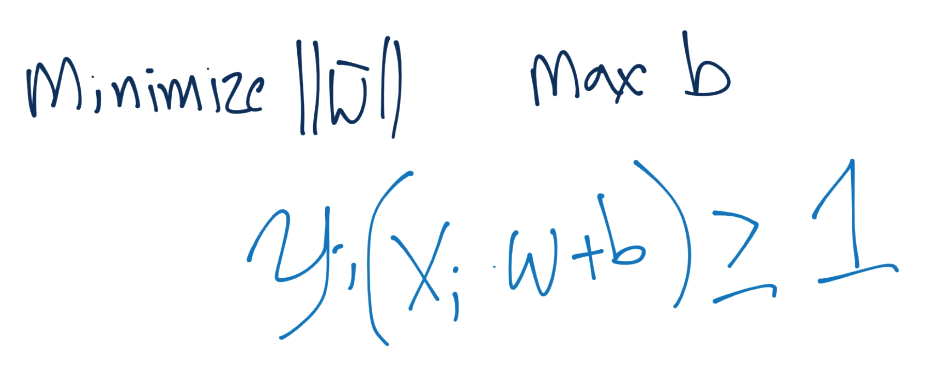 Minimize ||w̄|| Max b
yᵢ(xᵢ · w+b) ≥ 1